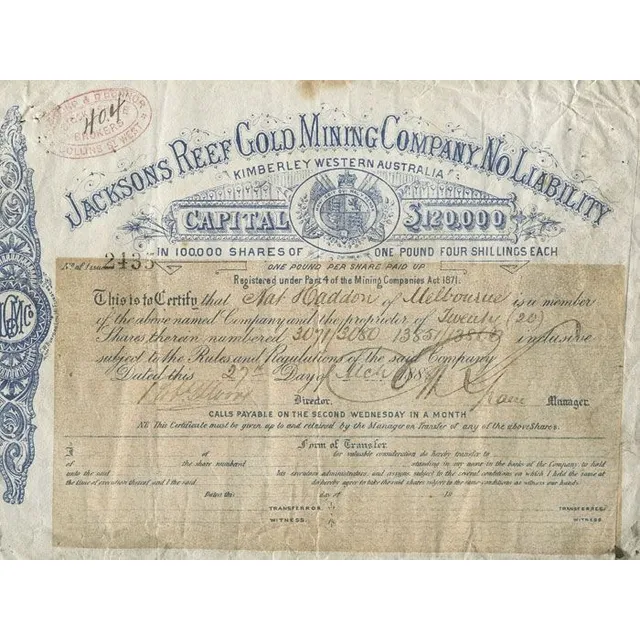 404
COLLINS ST WEST
JACKSONS REEF GOLD MINING COMPANY, NO LIABILITY
KIMBERLEY WESTERN AUSTRALIA
CAPITAL £120,000
IN 100,000 SHARES OF ONE POUND FOUR SHILLINGS EACH
ONE POUND PER SHARE PAID UP
2435
Registered under Part 4 of the Mining Companies Act 1871.
This is to Certify that Nat Haddon of Melbourne is a member
of the above named Company and the proprietor of Twenty (20)
Shares therein numbered 3071/3080 13851/13860 inclusive
subject to the Rules and Regulations of the said Company
Dated this 27th Day of Mch 188
Director. Manager.
CALLS PAYABLE ON THE SECOND WEDNESDAY IN A MONTH
NB This Certificate must be given up to and retained by the Manager on Transfer of any of the above Shares.
Form of Transfer.
of for valuable consideration do hereby transfer to
of the share numbered standing in my name in the books of the Company to hold
unto the said his executors administrators, and assigns subject to the several conditions on which I held the same at
the time of execution thereof and I the said do hereby agree to take the said shares subject to the same conditions as witness our hands
Dated this day of 18
TRANSFEROR. TRANSFEREE
WITNESS. WITNESS.